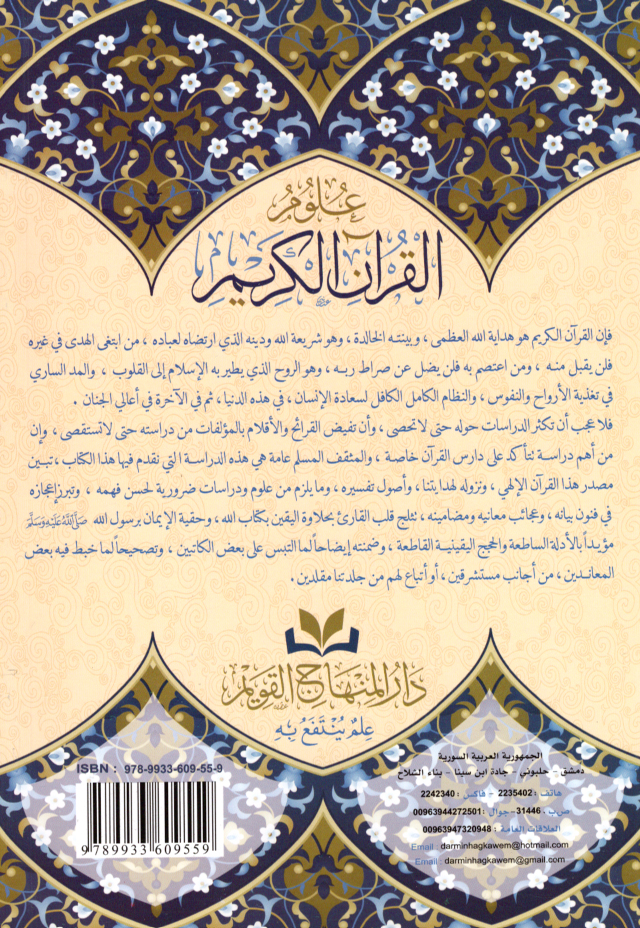 علوم
القرآن الكريم
فإن القرآن الكريم هو هداية الله العظمى ، وبينته الخالدة ، وهو شريعة الله ودينه الذي ارتضاه لعباده ، من ابتغى الهدى في غيره
فلن يقبل منه ، ومن اعتصم به فلن يضل عن صراط ربه ، وهو الروح الذي يطير به الإسلام إلى القلوب ، والمد الساري
في تغذية الأرواح والنفوس ، والنظام الكامل الكافل لسعادة الإنسان ، في هذه الدنيا ، ثم في الآخرة في أعالي الجنان .
فلا عجب أن تكثر الدراسات حوله حتى لاتحصى ، وأن تفيض القرائح والأقلام بالمؤلفات من دراسته حتى لاتستقصى ، وإن
من أهم دراسة تتأكد على دارس القرآن خاصة ، والمثقف المسلم عامة هي هذه الدراسة التي نقدم فيها هذا الكتاب ، تبين
مصدر هذا القرآن الإلهي ، ونزوله لهدايتنا ، وأصول تفسيره ، وما يلزم من علوم ودراسات ضرورية لحسن فهمه ، وتبرز إعجازه
في فنون بيانه ، وعجائب معانيه ومضامينه ، تثلج قلب القارئ بحلاوة اليقين بكتاب الله ، وحقية الإيمان برسول الله ﷺ
مؤيداً بالأدلة الساطعة والحجج اليقينية القاطعة ، وضمنته إيضاحاً لما التبس على بعض الكاتبين ، وتصحيحاً لما خبط فيه بعض
المعاندين ، من أجانب مستشرقين ، أو أتباع لهم من جلدتنا مقلدين .
دَارُ المِنهَاجِ القَوِيمِ
عِلمٌ يُنْتَفَعُ بِهِ
ISBN : 978-9933-609-55-9
9 789933 609559
الجمهورية العربية السورية
دمشق - حلبوني - جادة ابن سينا - بناء الشلاح
هاتف : 2235402 - فاكس : 2242340
ص.ب : 31446 - جوال : 00963944272501
العلاقات العامة : 00963947320948
Email : darminhagkawem@hotmail.com
Email : darminhagkawem@gmail.com